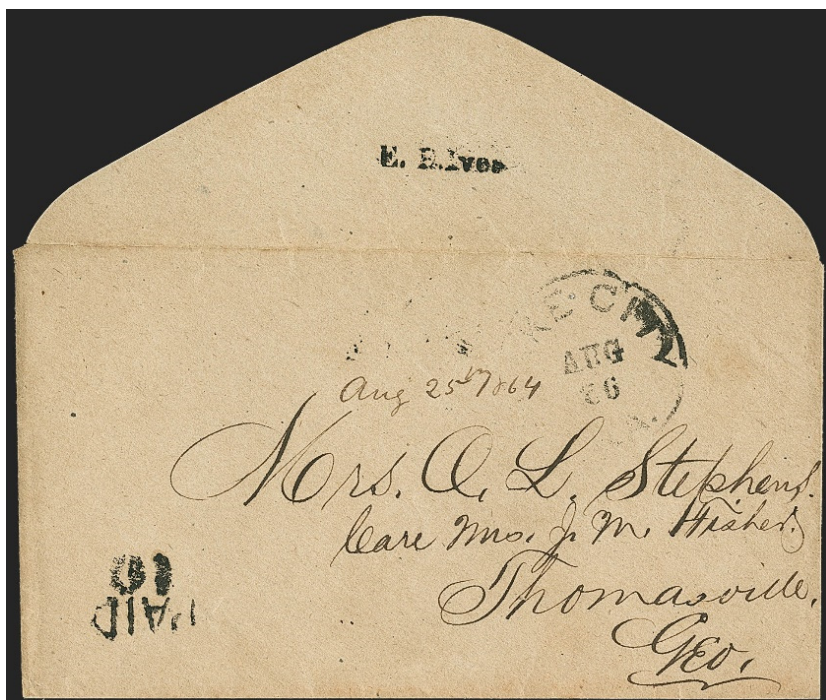 E. R. Ives
KE CITY
AUG
26
Aug 25th 1864
Mrs. O. L. Stephens.
Care Mrs. J. M. Fisher.
Thomasville,
Geo.
PAID
10